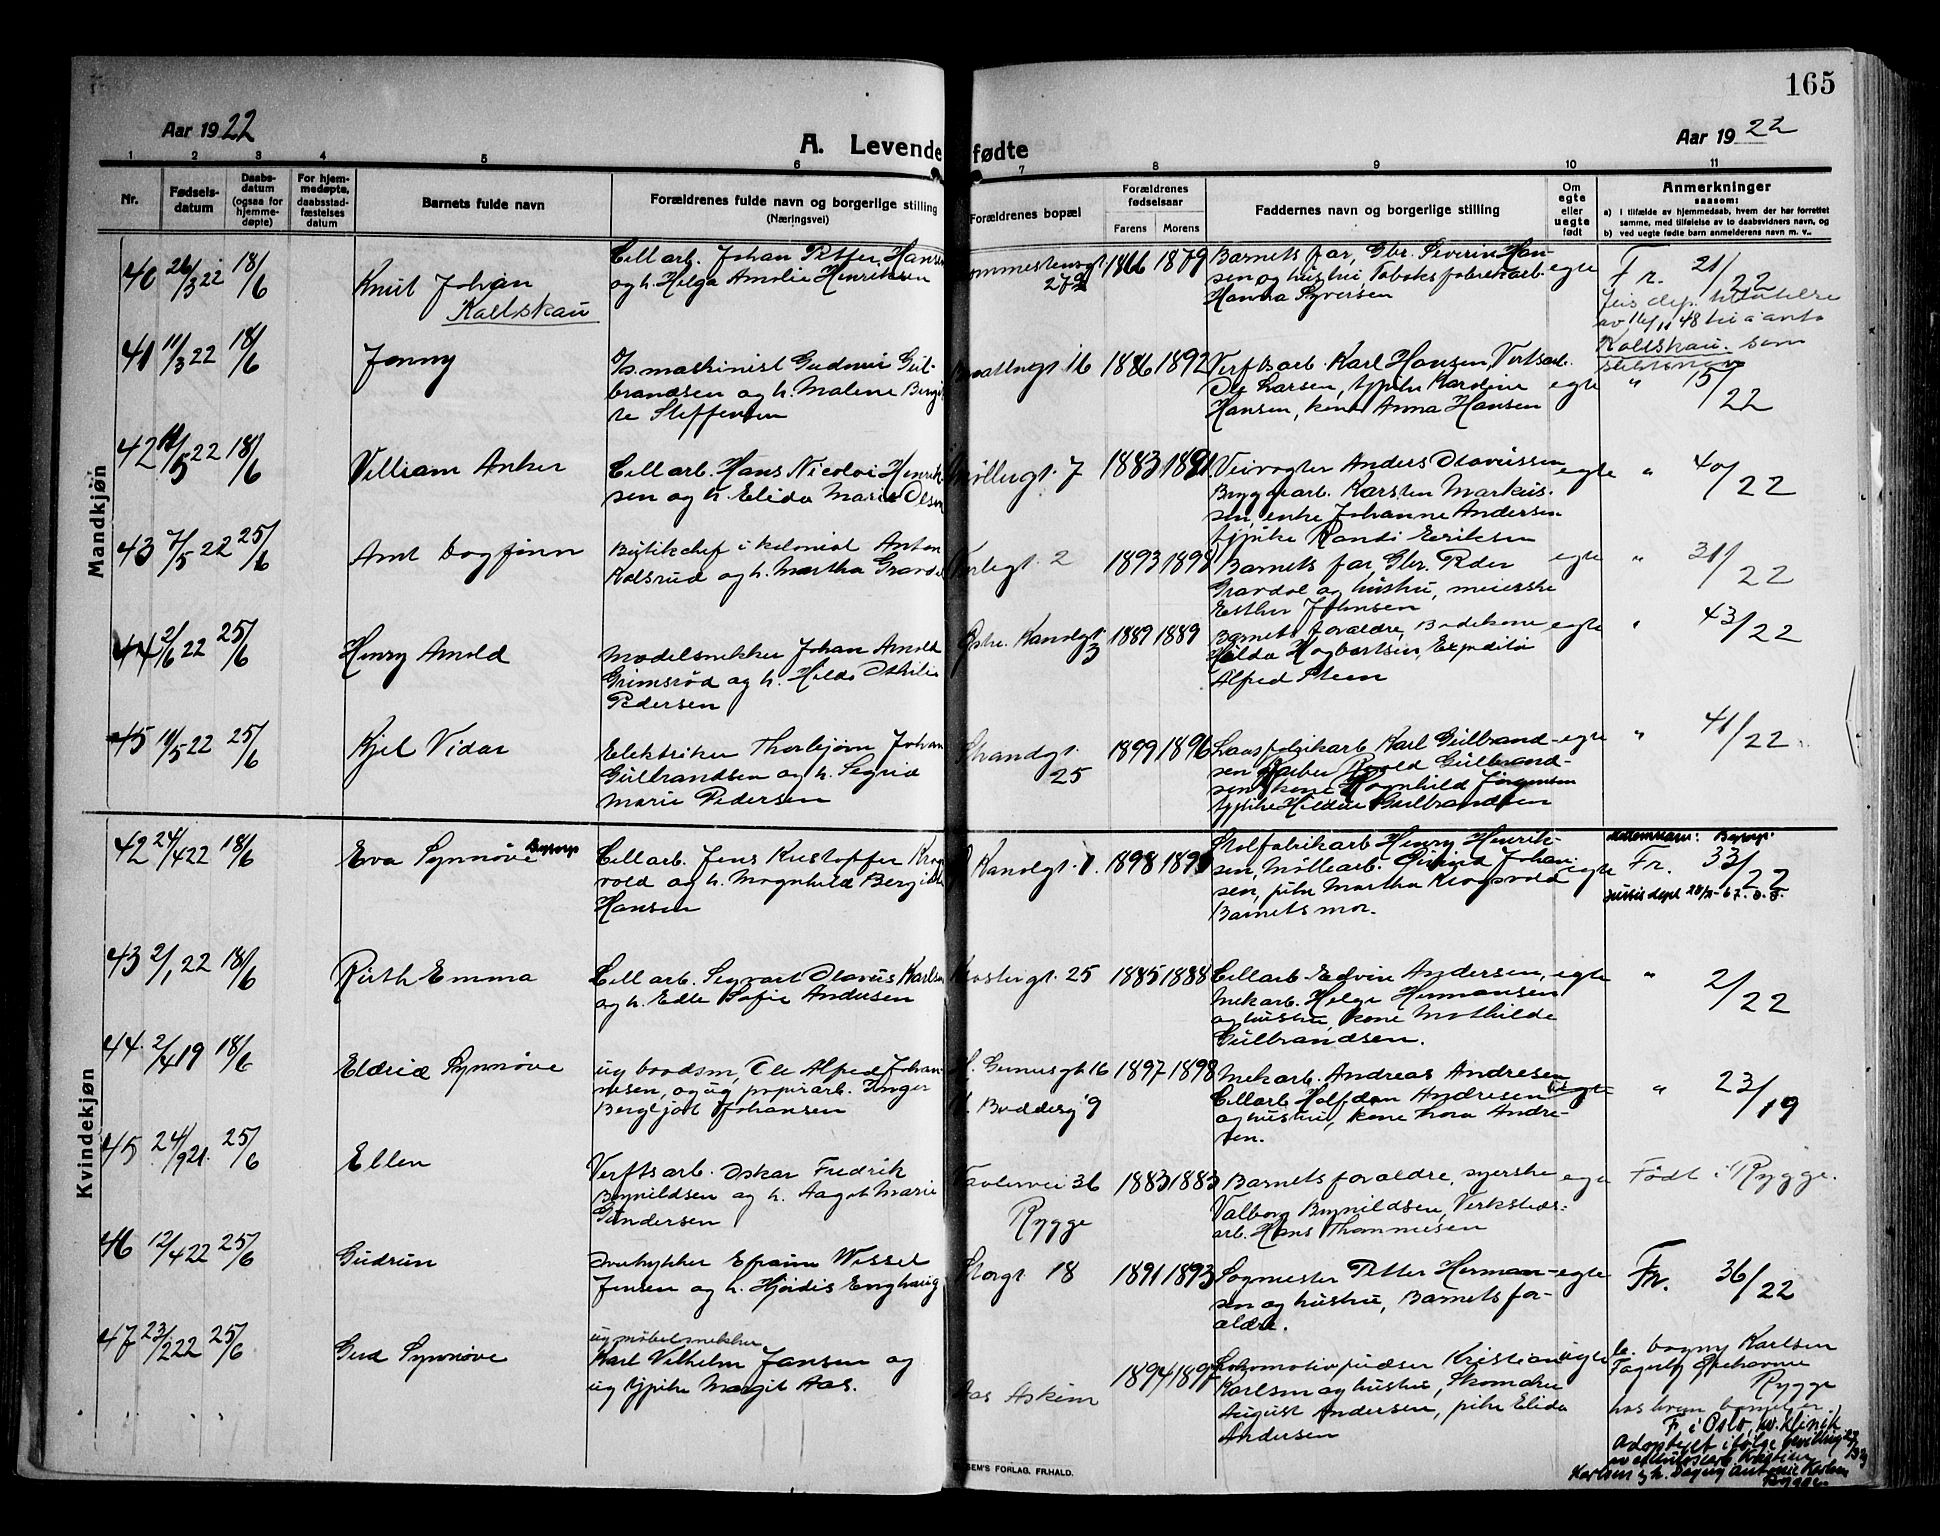 165
Aar 1922
A. Levende fødte
Aar 1922
1 2 3 4 5 6 7 8 9 10 11
Nr.
Fødsels-
datum
Daabs-
datum
(ogsaa for
hjemme-
døpte)
For hjem-
medøpte,
daabsstad-
fæstelses
datum
Barnets fulde navn
Forældrenes fulde navn og borgerlige stilling
(Næringsvei)
Forældrenes bopæl
Forældrenes
fødselsaar
Farens Morens
Faddernes navn og borgerlige stilling
Om
egte
eller
uegte
født
Anmerkninger
saasom:
a) i tilfælde av hjemmedaab, hvem der har forrettet
samme, med tilføielse av to daabsvidners navn, og
b) ved uegte fødte barn anmelderens navn m. v.
Mandkjøn
40 26/3 22 18/6
Knut Johan
Kallskau
Cellarb. Johan Petter Hansen
og h. Helga Amalie Henriksen
1866 1879
Barnets far, Gbr. Severin Han-
sen og hustru, Tobaksfabrikarb.
Hanna Syversen
egte
Fr. 21/22
Jus. dep. tillatelse
av 16/11 48 til å anta
Kallskau som
slektsnavn
41 11/3 22 18/6
Jonny
maskinist Gudmun Gul-
brandsen og h. Malene Birgit-
te Steffensen
16 1886 1892
Verftsarb. Karl Hansen, Verftsarb.
Ole Larsen, typike Karoline
Hansen, kone Anna Hansen
egte
" 15/22
42 18/6
5 22
William Anker
Cellarb. Hans Nicolai Henrik-
sen og h. Elida Marie Olsen
Møllergt. 7 1883 1891
Veivogter Anders Olavussen
Bryggearb. Karsten Markus-
sen, enke Johanne Andersen
typike Randi Eriksen
egte
" 40/22
43 7/5 22 25/6
Arnt Dagfinn
Butikchef i kolonial Anton
Kolsrud og h. Martha Grardal
2 1893 1898
Barnets far, Gbr. Peder
Grardal og hustru, meierske
Esther Johnsen
egte
" 31/22
44 2/6 22 25/6
Henry Arnold
Modelsnekker Johan Arnold
Grimsrød og h. Hilda Othilie
Pedersen
Østre Kanalgt. 3 1889 1889
Barnets forældre, Badekone
Hilda Hagbartsen, Expeditør
Alfred Steen
egte
" 43/22
45 19/5 22 25/6
Kjel Vidar
Elektriker Thorbjørn Johan
Gulbrandsen og h. Sigrid
Marie Pedersen
Strandgt. 25 1899 1896
Laasfabrikarb. Karl Gulbrand-
sen, Barber Roald Gulbrand-
sen, kone Ragnhild Jørgensen
typike Hildur Gulbrandsen
egte
" 41/22
Kvindekjøn
42 24/4 22 18/6
Eva Synnøve
Cellarb. Jens Kristoffer Krog-
vold og h. Magnhild Bergithe
Hansen
Kanalgt. 1. 1898
Stolfabrikarb. Henry Henrik-
sen, Møllearb. Eivind Johan-
sen, pike Martha Krogsvold
Barnets mor.
egte
Mellemnavn:
Fr. 33/22
43 2/1 22 18/6
Ruth Emma
Cellarb. Sigvart Olavus Karlsen
og h. Edle Sofie Andersen
25 1885 1888
Cellarb. Edvin Andersen,
Mekarb. Helge Hermansen
og hustru, kone Mathilde
Gulbrandsen.
egte
" 2/22
44 2/4 19 18/6
Eldrid Synnøve
ug baadsm. Ole Alfred Johan-
nesen, og ug papirarb. Inger
Bergljot Johansen
16 1897 1898
9
Mekarb. Andreas Andresen
Cellarb. Halfdan Andresen
og hustru, kone Thora Andre-
sen.
uegte
" 23/19
45 24/9 21 25/6
Ellen
Verftsarb. Oskar Fredrik
Brynildsen og h. Aagot Marie
Gundersen
Vaalervei 36
Rygge
1883 1883
Barnets forældre, syerske
Valborg Brynildsen, Verksteds-
arb. Hans Thommesen
egte
Født i Rygge.
46 12/4 22 25/6
Gudrun
Efraim Wessel
Jensen og h. Hjørdis Enghaug
Storgt. 18 1891 1893
Sagmester Petter Herman-
sen og hustru, Barnets for-
ældre.
egte
Fr. 36/22
47 23/2 22 25/6
Gerd Synnøve
ug møbelsnekker
Karl Vilhelm Jansen og
ug typike Margit Aas.
Aas Askim
1894 1897
Lokomotivpudser Kristian
Karlsen og hustru, Skomaker
August Andersen, pike Elida
Andersen
uegte
Dagny Karlsen
Rygge
hos hvem barnet er.
F. i Oslo kv. klinik
Adoptert ifølge bevilling
Karlsen og h. Dagny Antonie Karlsen
Rygge
SEM'S FORLAG, FR.HALD.